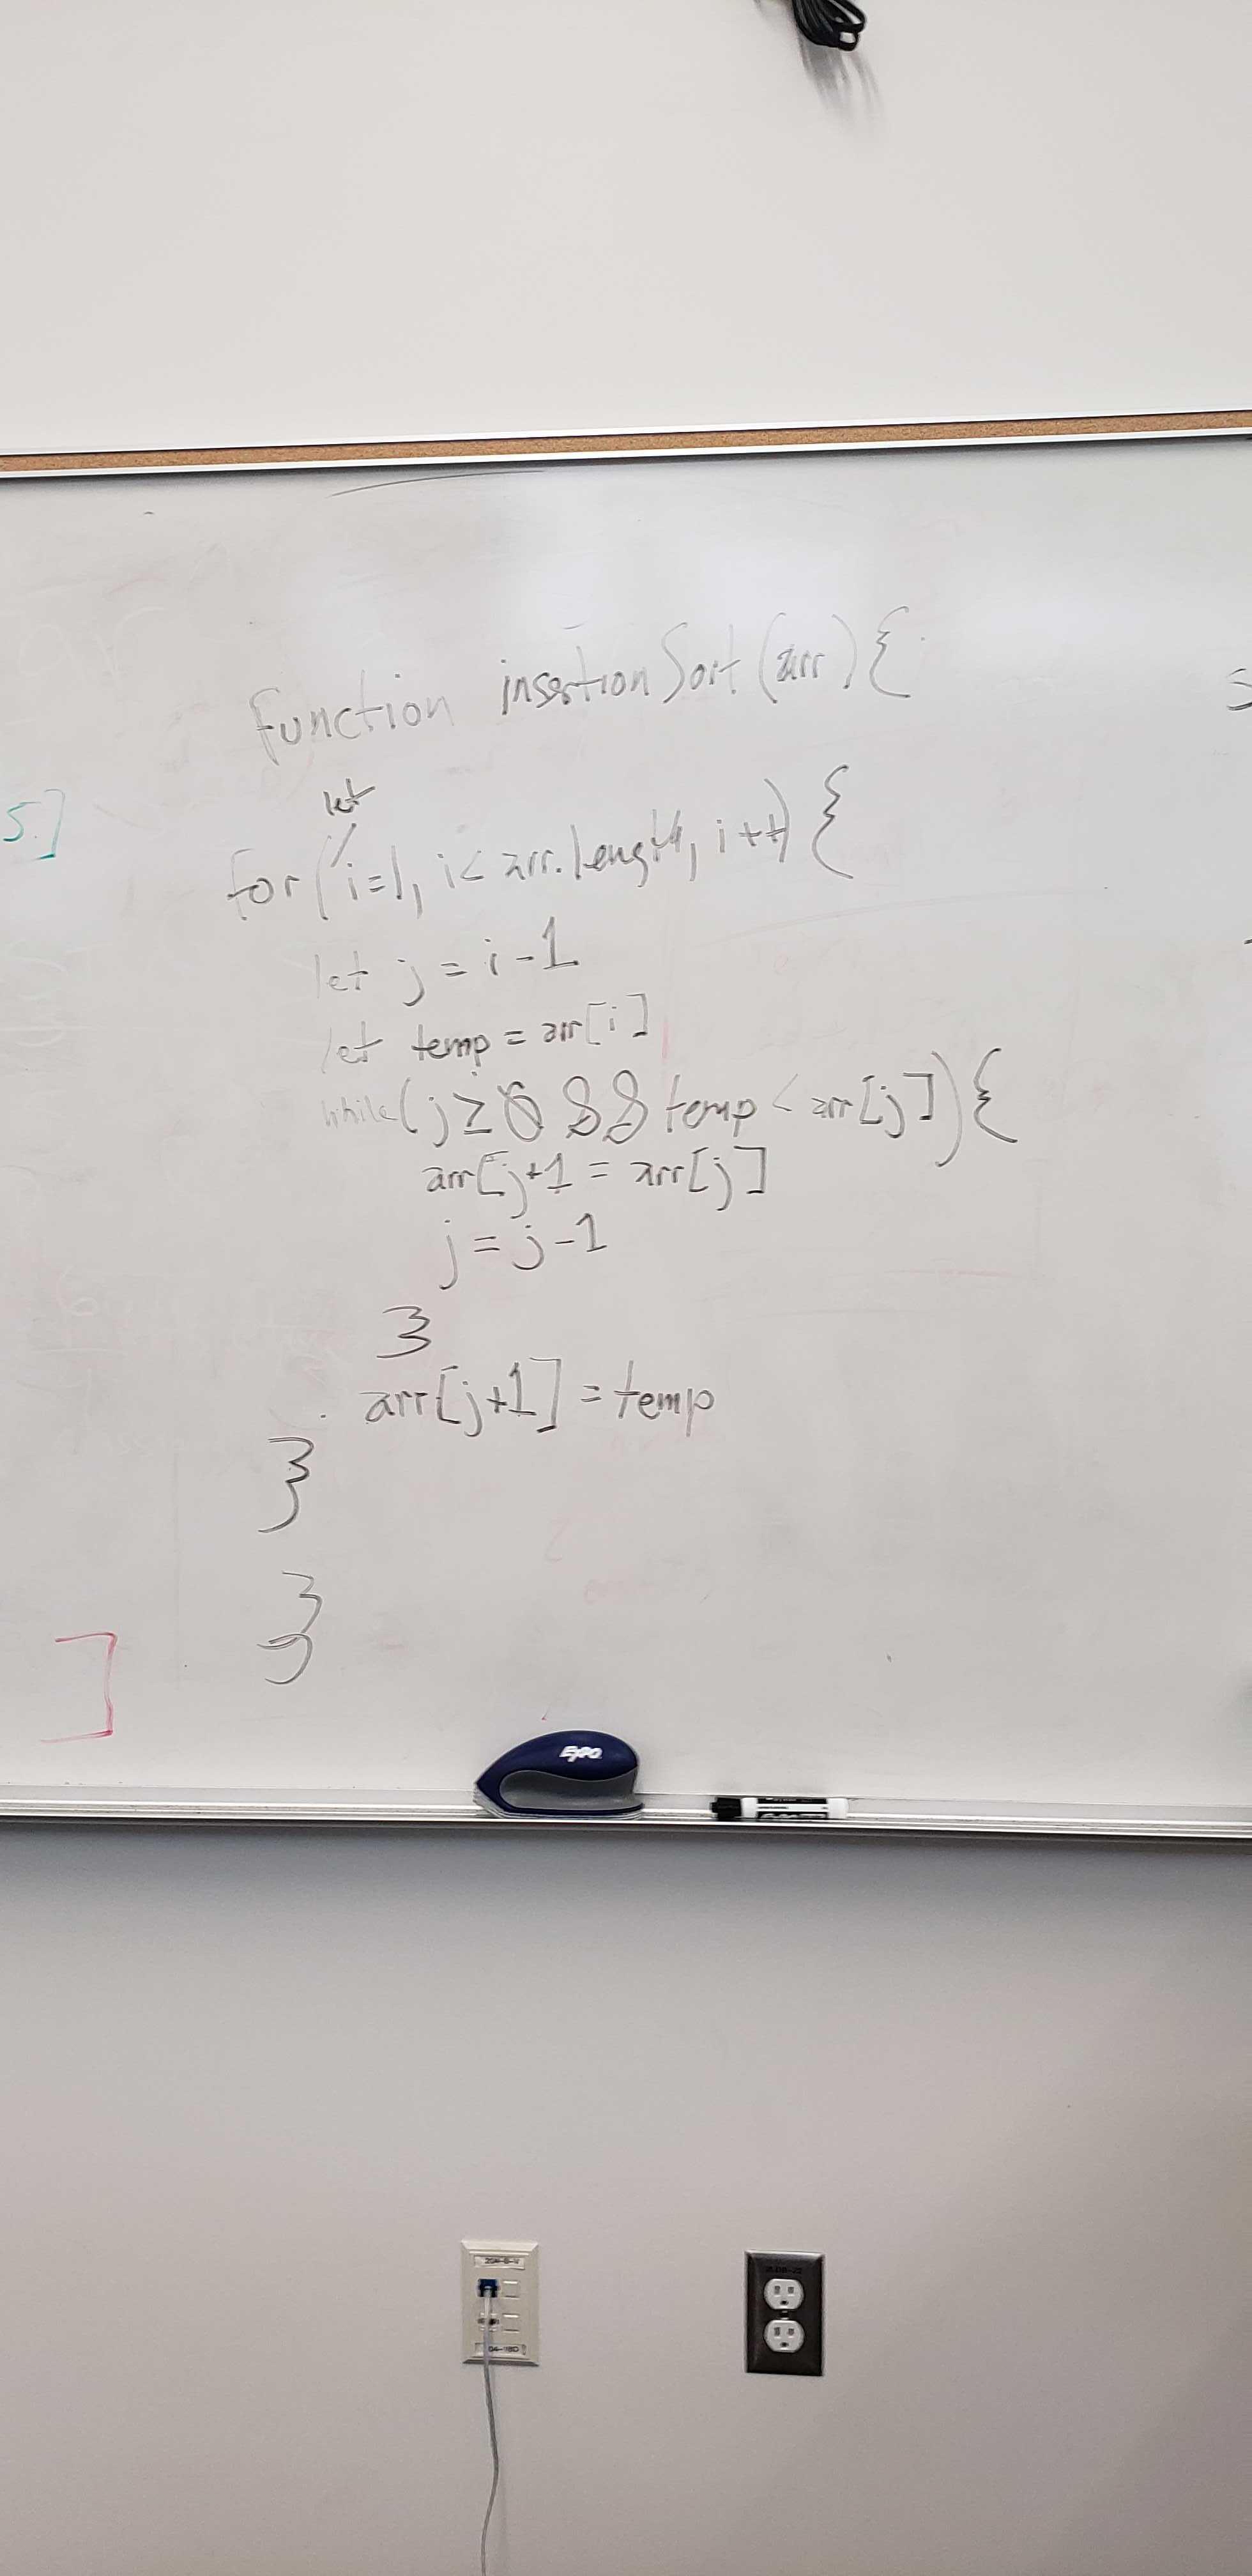 function insertionSort(arr){
5]
let
for(i=1, i< arr.length, i++) {
let j = i-1
let temp = arr[i]
while( j ≥ 0 && temp < arr[j] ){
arr[j+1 = arr[j]
j = j-1
}
arr[j+1] = temp
}
}
]
EXPO